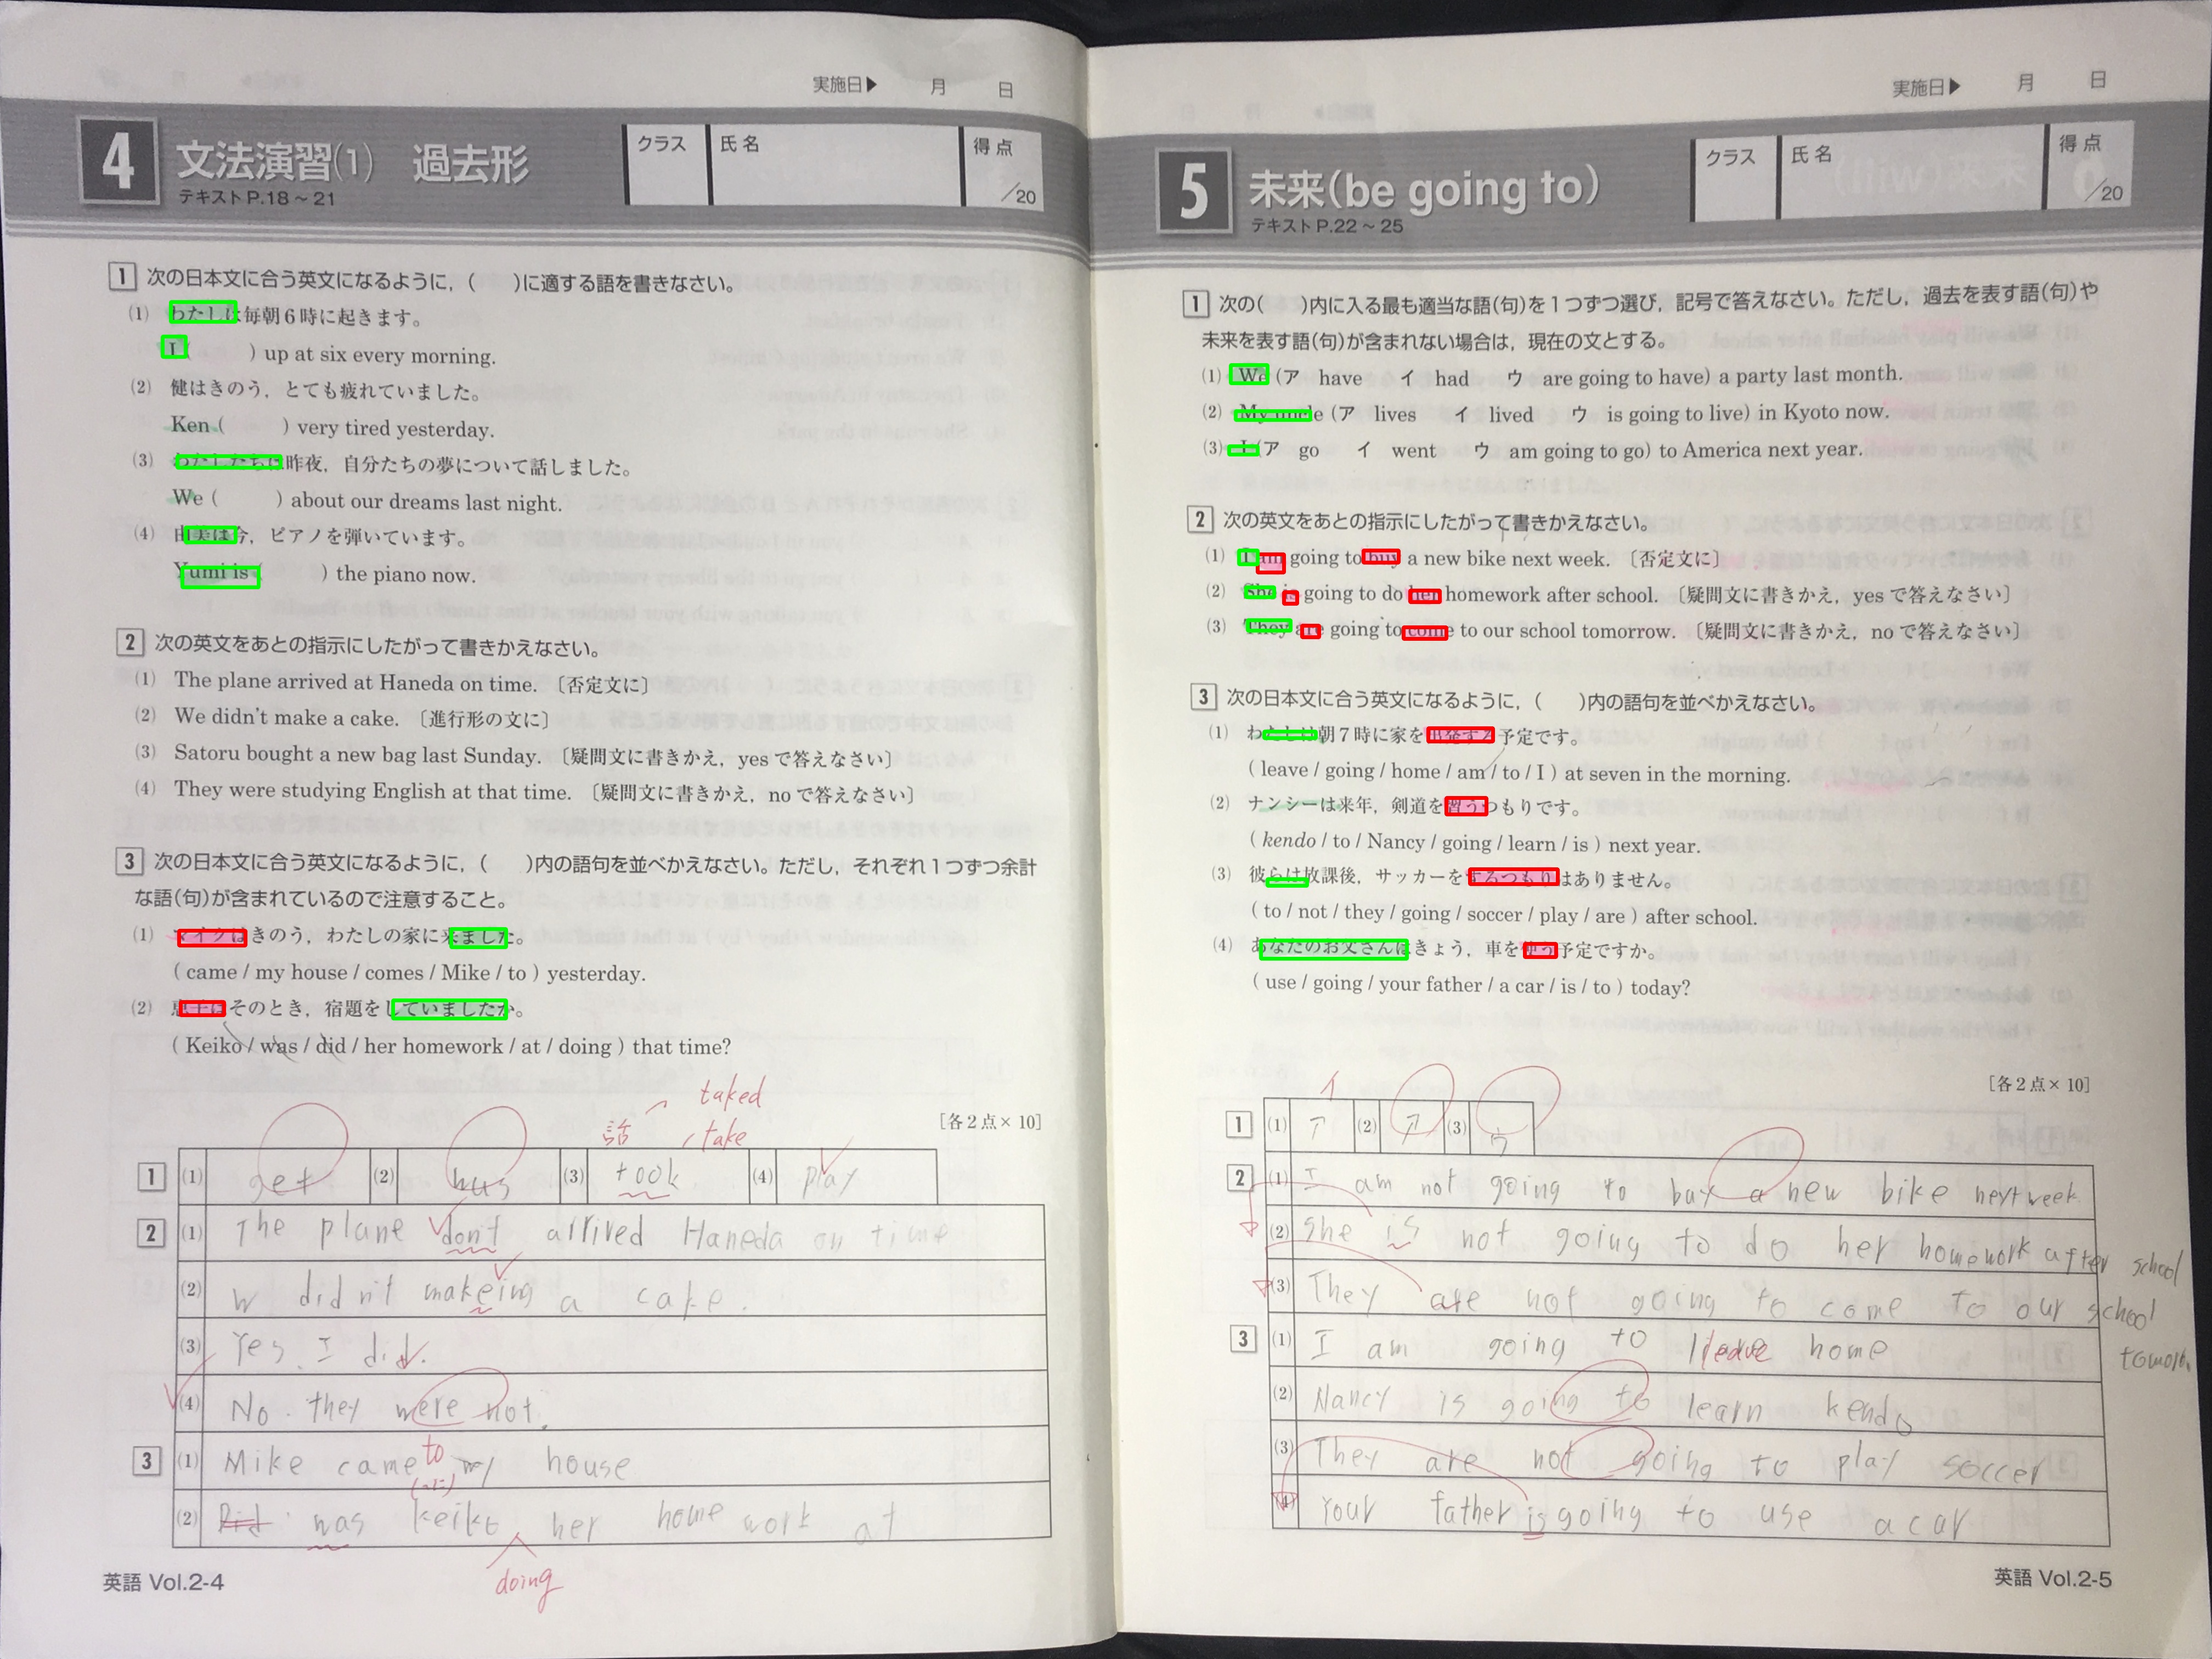 実施日▶ 月 日
4 文法演習(1) 過去形
テキストP.18～21
クラス 氏名 得点 /20
1 次の日本文に合う英文になるように，( )に適する語を書きなさい。
(1) わたしは毎朝6時に起きます。
I ( ) up at six every morning.
(2) 健はきのう，とても疲れていました。
Ken ( ) very tired yesterday.
(3) わたしたちは昨夜，自分たちの夢について話しました。
We ( ) about our dreams last night.
(4) 由美は今，ピアノを弾いています。
Yumi is ( ) the piano now.
2 次の英文をあとの指示にしたがって書きかえなさい。
(1) The plane arrived at Haneda on time. 〔否定文に〕
(2) We didn't make a cake. 〔進行形の文に〕
(3) Satoru bought a new bag last Sunday. 〔疑問文に書きかえ，yesで答えなさい〕
(4) They were studying English at that time. 〔疑問文に書きかえ，noで答えなさい〕
3 次の日本文に合う英文になるように，( )内の語句を並べかえなさい。ただし，それぞれ1つずつ余計
な語(句)が含まれているので注意すること。
(1) マイクはきのう，わたしの家に来ました。
( came / my house / comes / Mike / to ) yesterday.
(2) 恵子はそのとき，宿題をしていましたか。
( Keiko / was / did / her homework / at / doing ) that time?
taked
話 take
[各2点×10]
1 (1) get (2) was (3) took (4) play
2 (1) The plane don't arrived Haneda on time
(2) W didn't makeing a cake.
(3) Yes, I did.
(4) No. they were not.
3 (1) Mike came to my house
(2) Did was keiko her home work at
doing
英語 Vol.2-4
実施日▶ 月 日
5 未来(be going to)
テキストP.22～25
クラス 氏名 得点 /20
1 次の( )内に入る最も適当な語(句)を1つずつ選び，記号で答えなさい。ただし，過去を表す語(句)や
未来を表す語(句)が含まれない場合は，現在の文とする。
(1) We (ア have イ had ウ are going to have) a party last month.
(2) My uncle (ア lives イ lived ウ is going to live) in Kyoto now.
(3) I (ア go イ went ウ am going to go) to America next year.
2 次の英文をあとの指示にしたがって書きかえなさい。
(1) I am going to buy a new bike next week. 〔否定文に〕
(2) She is going to do her homework after school. 〔疑問文に書きかえ，yesで答えなさい〕
(3) They are going to come to our school tomorrow. 〔疑問文に書きかえ，noで答えなさい〕
3 次の日本文に合う英文になるように，( )内の語句を並べかえなさい。
(1) わたしは朝7時に家を出発する予定です。
( leave / going / home / am / to / I ) at seven in the morning.
(2) ナンシーは来年，剣道を習うつもりです。
( kendo / to / Nancy / going / learn / is ) next year.
(3) 彼らは放課後，サッカーをするつもりはありません。
( to / not / they / going / soccer / play / are ) after school.
(4) あなたのお父さんはきょう，車を使う予定ですか。
( use / going / your father / a car / is / to ) today?
[各2点×10]
イ
1 (1) ア (2) ア (3) ウ
2 (1) I am not going to buy a new bike next week.
(2) She is not going to do her homework after school
(3) They are not going to come to our school
3 (1) I am going to leave home
(2) Nancy is going to learn kendo
(3) They are not going to play soccer
(4) Your father is going to use a car
英語 Vol.2-5